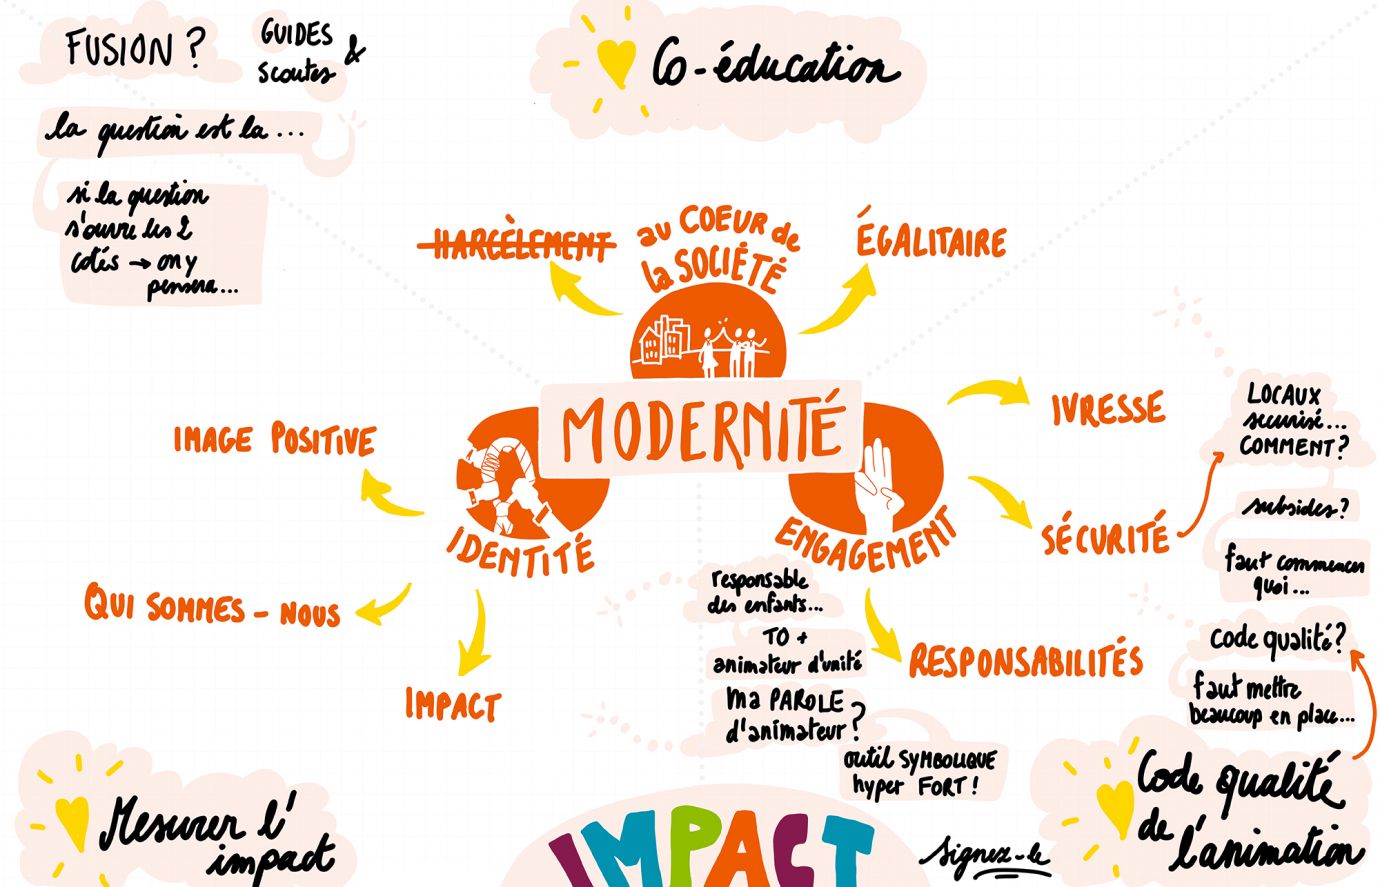 FUSION ?
GUIDES &
scoutes
la question est la ...
si la question
s'ouvre les 2
cotés → on y
pensera...
Co-éducation
HARCÈLEMENT
au COEUR de
la SOCIÉTÉ
ÉGALITAIRE
MODERNITÉ
IMAGE POSITIVE
IDENTITÉ
QUI SOMMES - NOUS
IMPACT
ENGAGEMENT
IVRESSE
SÉCURITÉ
RESPONSABILITÉS
LOCAUX
securisé...
COMMENT ?
subsides ?
faut commencer
quoi ...
code qualité ?
faut mettre
beaucoup en place...
responsable
des enfants...
TO +
animateur d'unité
ma PAROLE
d'animateur ?
outil SYMBOLIQUE
hyper FORT !
Mesurer l'
impact
IMPACT
Signez-le
Code qualité
de l'animation